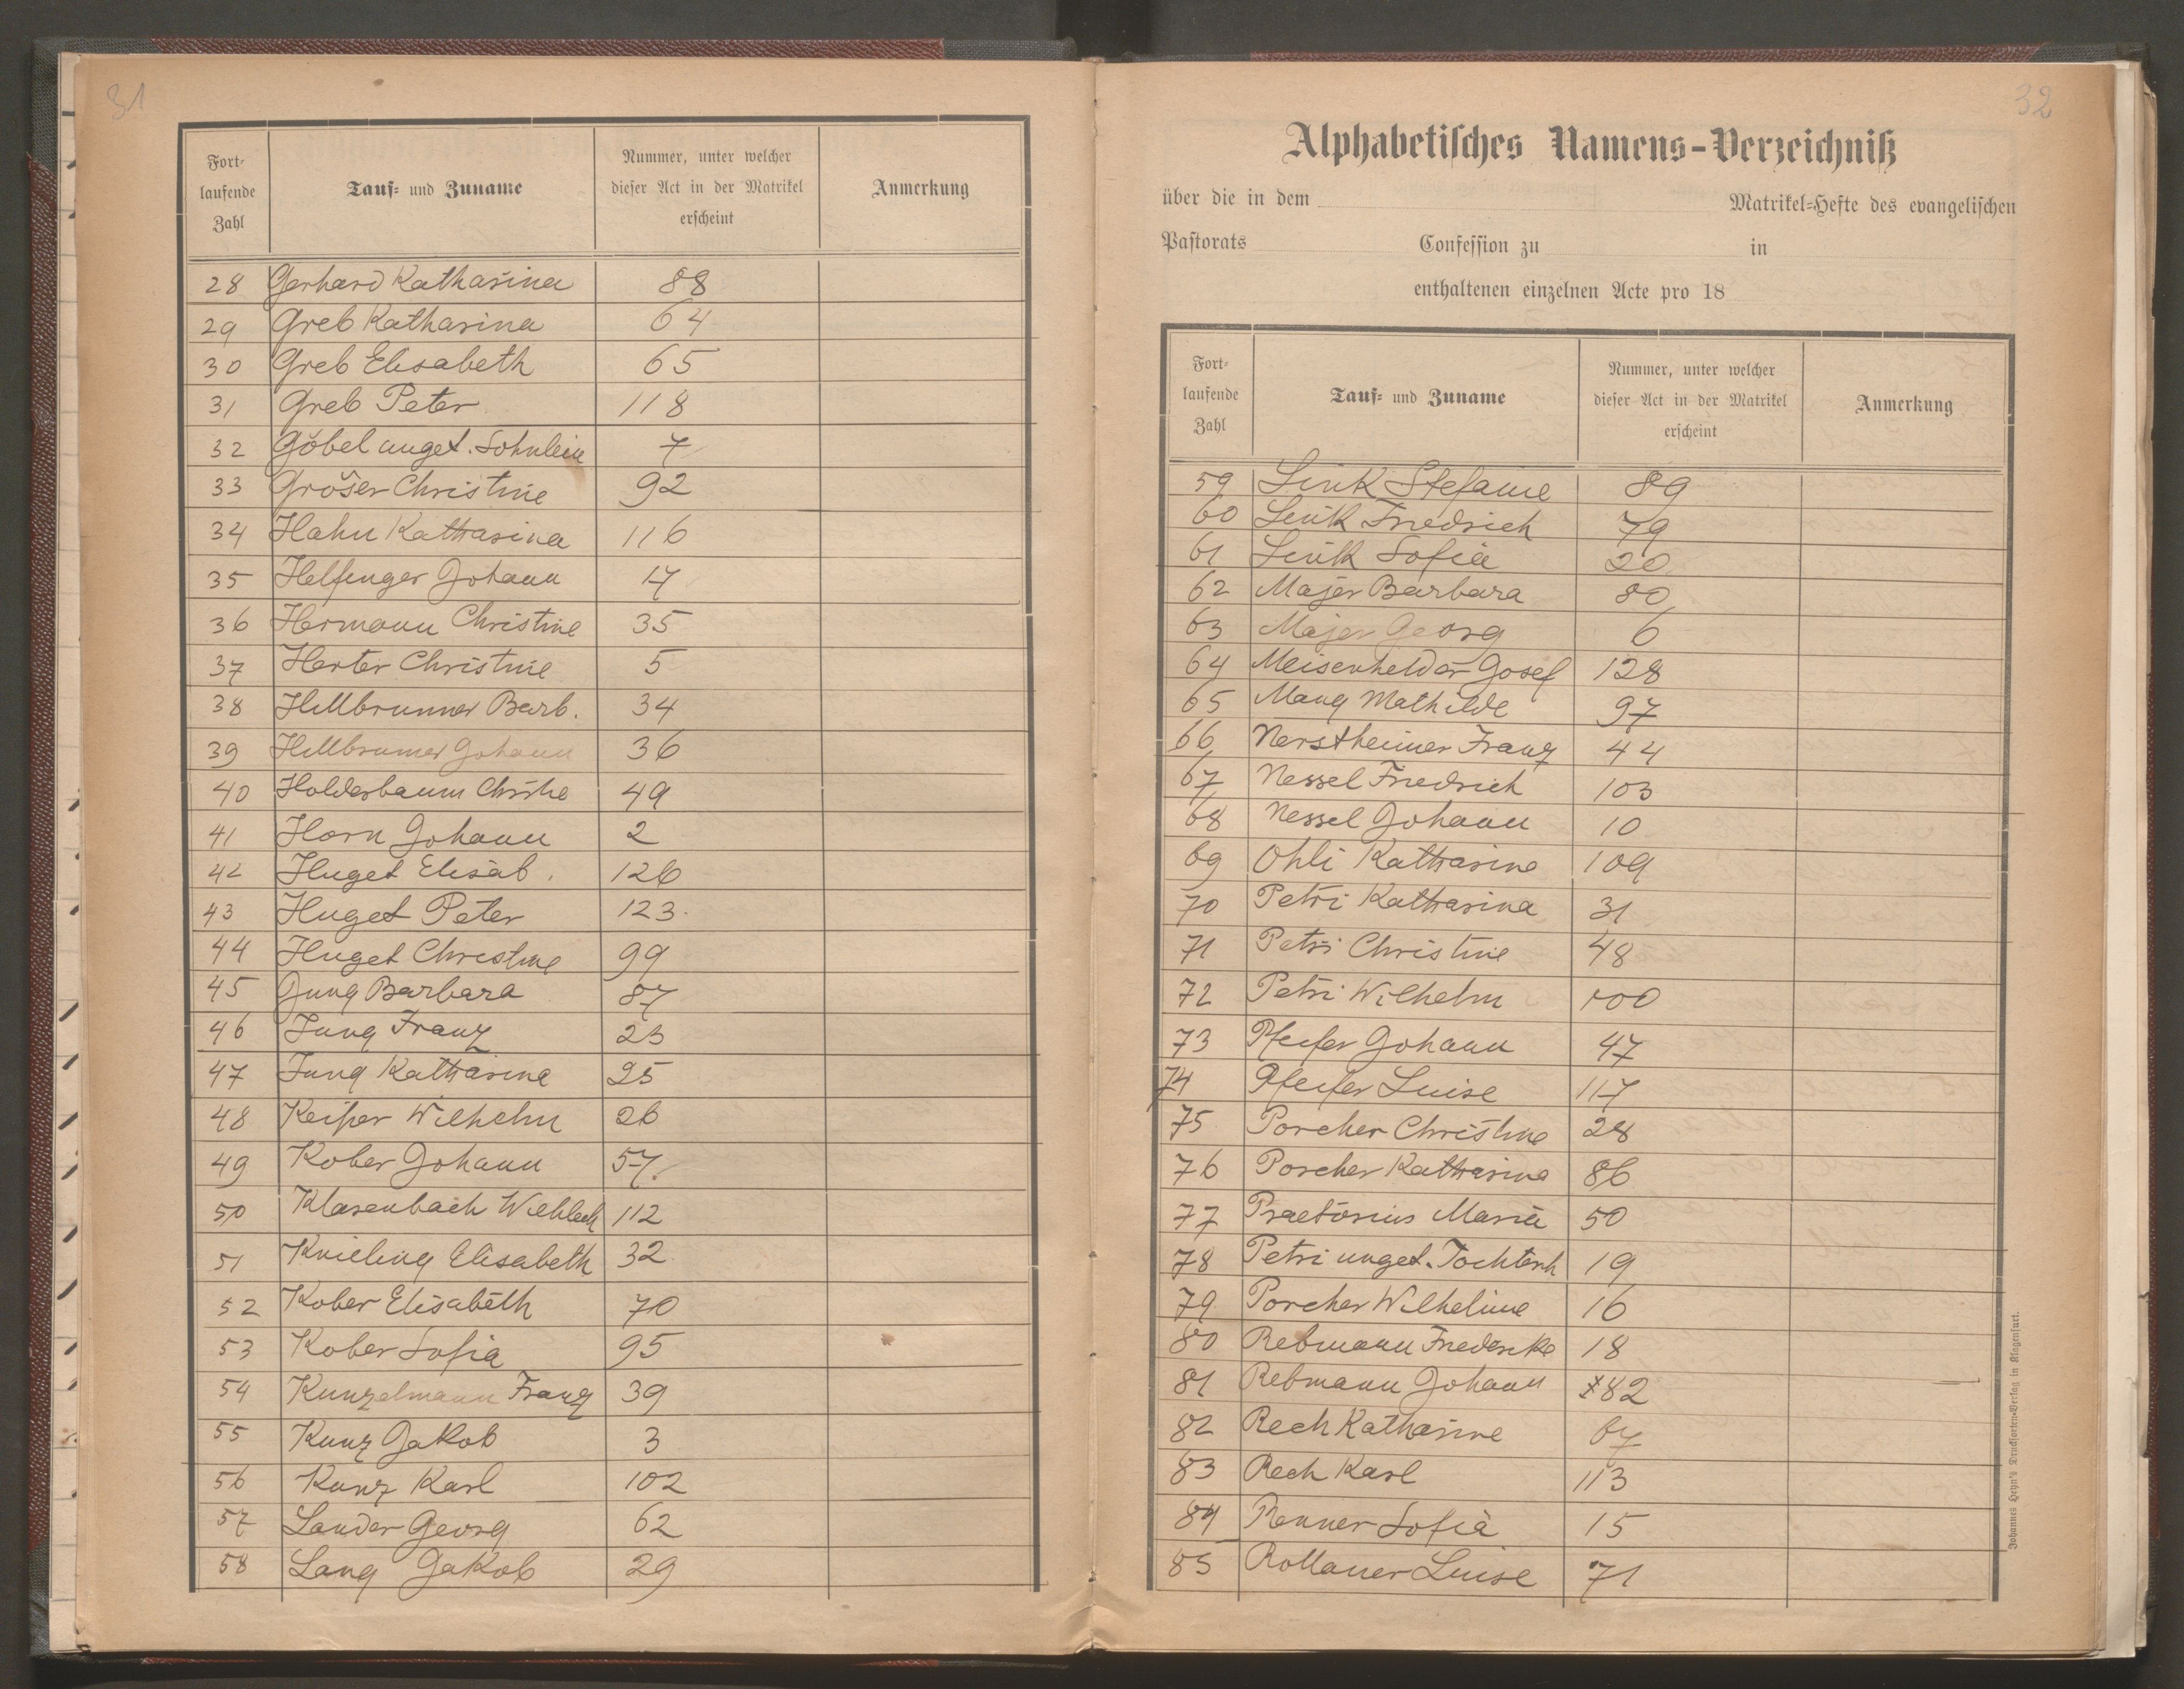 31
Fort-
laufende
Zahl
Tauf- und Zuname
Nummer, unter welcher
dieser Act in der Matrikel
erscheint
Anmerkung
28 Gerhard Katharina 88
29 Greb Katharina 64
30 Greb Elisabeth 65
31 Greb Peter 118
32 Göbel unget. Sohnlein 7
33 Größer Christine 92
34 Hahn Katharina 116
35 Helfenger Johann 17
36 Hermann Christine 35
37 Herter Christine 5
38 Hellbrunner Barb. 34
39 Hellbrunner Johann 36
40 Holderbaum 49
41 Horn Johann 2
42 Huget Elisab. 126
43 Huget Peter 123.
44 Huget Christine 99
45 Jung Barbara 87
46 Jung Franz 23
47 Jung Katharina 25
48 Keiper Wilhelm 26
49 Kober Johann 57.
50 Klasenbach 112
51 Knieling Elisabeth 32
52 Kober Elisabeth 70
53 Kober Sofia 95
54 Kunzelmann Franz 39
55 Kunz Jakob 3
56 Kunz Karl 102
57 Lander Georg 62
58 Lang Jakob 29
32
Alphabetisches Namens-Verzeichniß
über die in dem Matrikel-Hefte des evangelischen
Pastorats Confession zu in
enthaltenen einzelnen Acte pro 18
Fort-
laufende
Zahl
Tauf- und Zuname
Nummer, unter welcher
dieser Act in der Matrikel
erscheint
Anmerkung
59 Link Stefanie 89
60 Link Friedrich 79
61 Link Sofia 20
62 Majer Barbara 80
63 Majer Georg 6
64 Meisenhelder Josef 128
65 Mang Mathilde 97
66 Nerstheimer Franz 44
67 Nessel Friedrich 103
68 Nessel Johann 10
69 Ohli Katharina 109
70 Petri Katharina 31
71 Petri Christine 48
72 Petri Wilhelm 100
73 Pfeifer Johann 47
74 Pfeifer Luise 117
75 Porcher Christine 28
76 Porcher Katharina 86
77 Praetorius Maria 50
78 Petri unget. 19
79 Porcher Wilhelmine 16
80 Rebmann Friedericke 18
81 Rebmann Johann 82
82 Rech Katharine 67
83 Rech Karl 113
84 Renner Sofia 15
85 Rollauer Luise 71
Johannes Heyn's Drucksorten-Verlag in Klagenfurt.